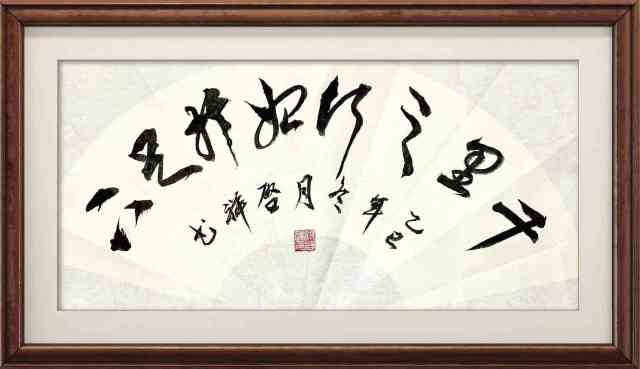 千里之行始於足下
巳年冬月啓祥书